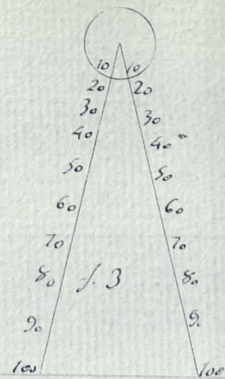 10 10
20 20
30 30
40 40
50 50
60 60
70 70
80 80
90 90
100 100